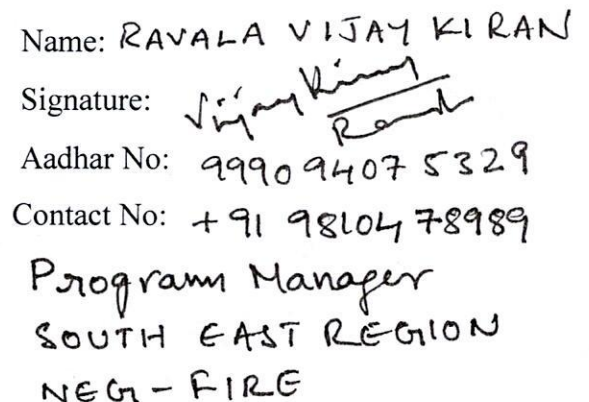 Name: RAVALA VIJAY KIRAN
Signature: Vijay Kiran
Aadhar No: 9990 9407 5329
Contact No: +91 98104 78989
Program Manager
SOUTH EAST REGION
NEG - FIRE